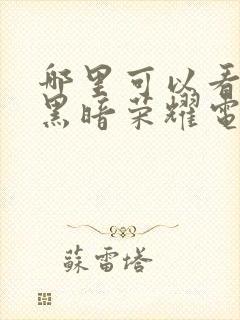 哪里可以看
黑暗荣耀電
蘇雷塔